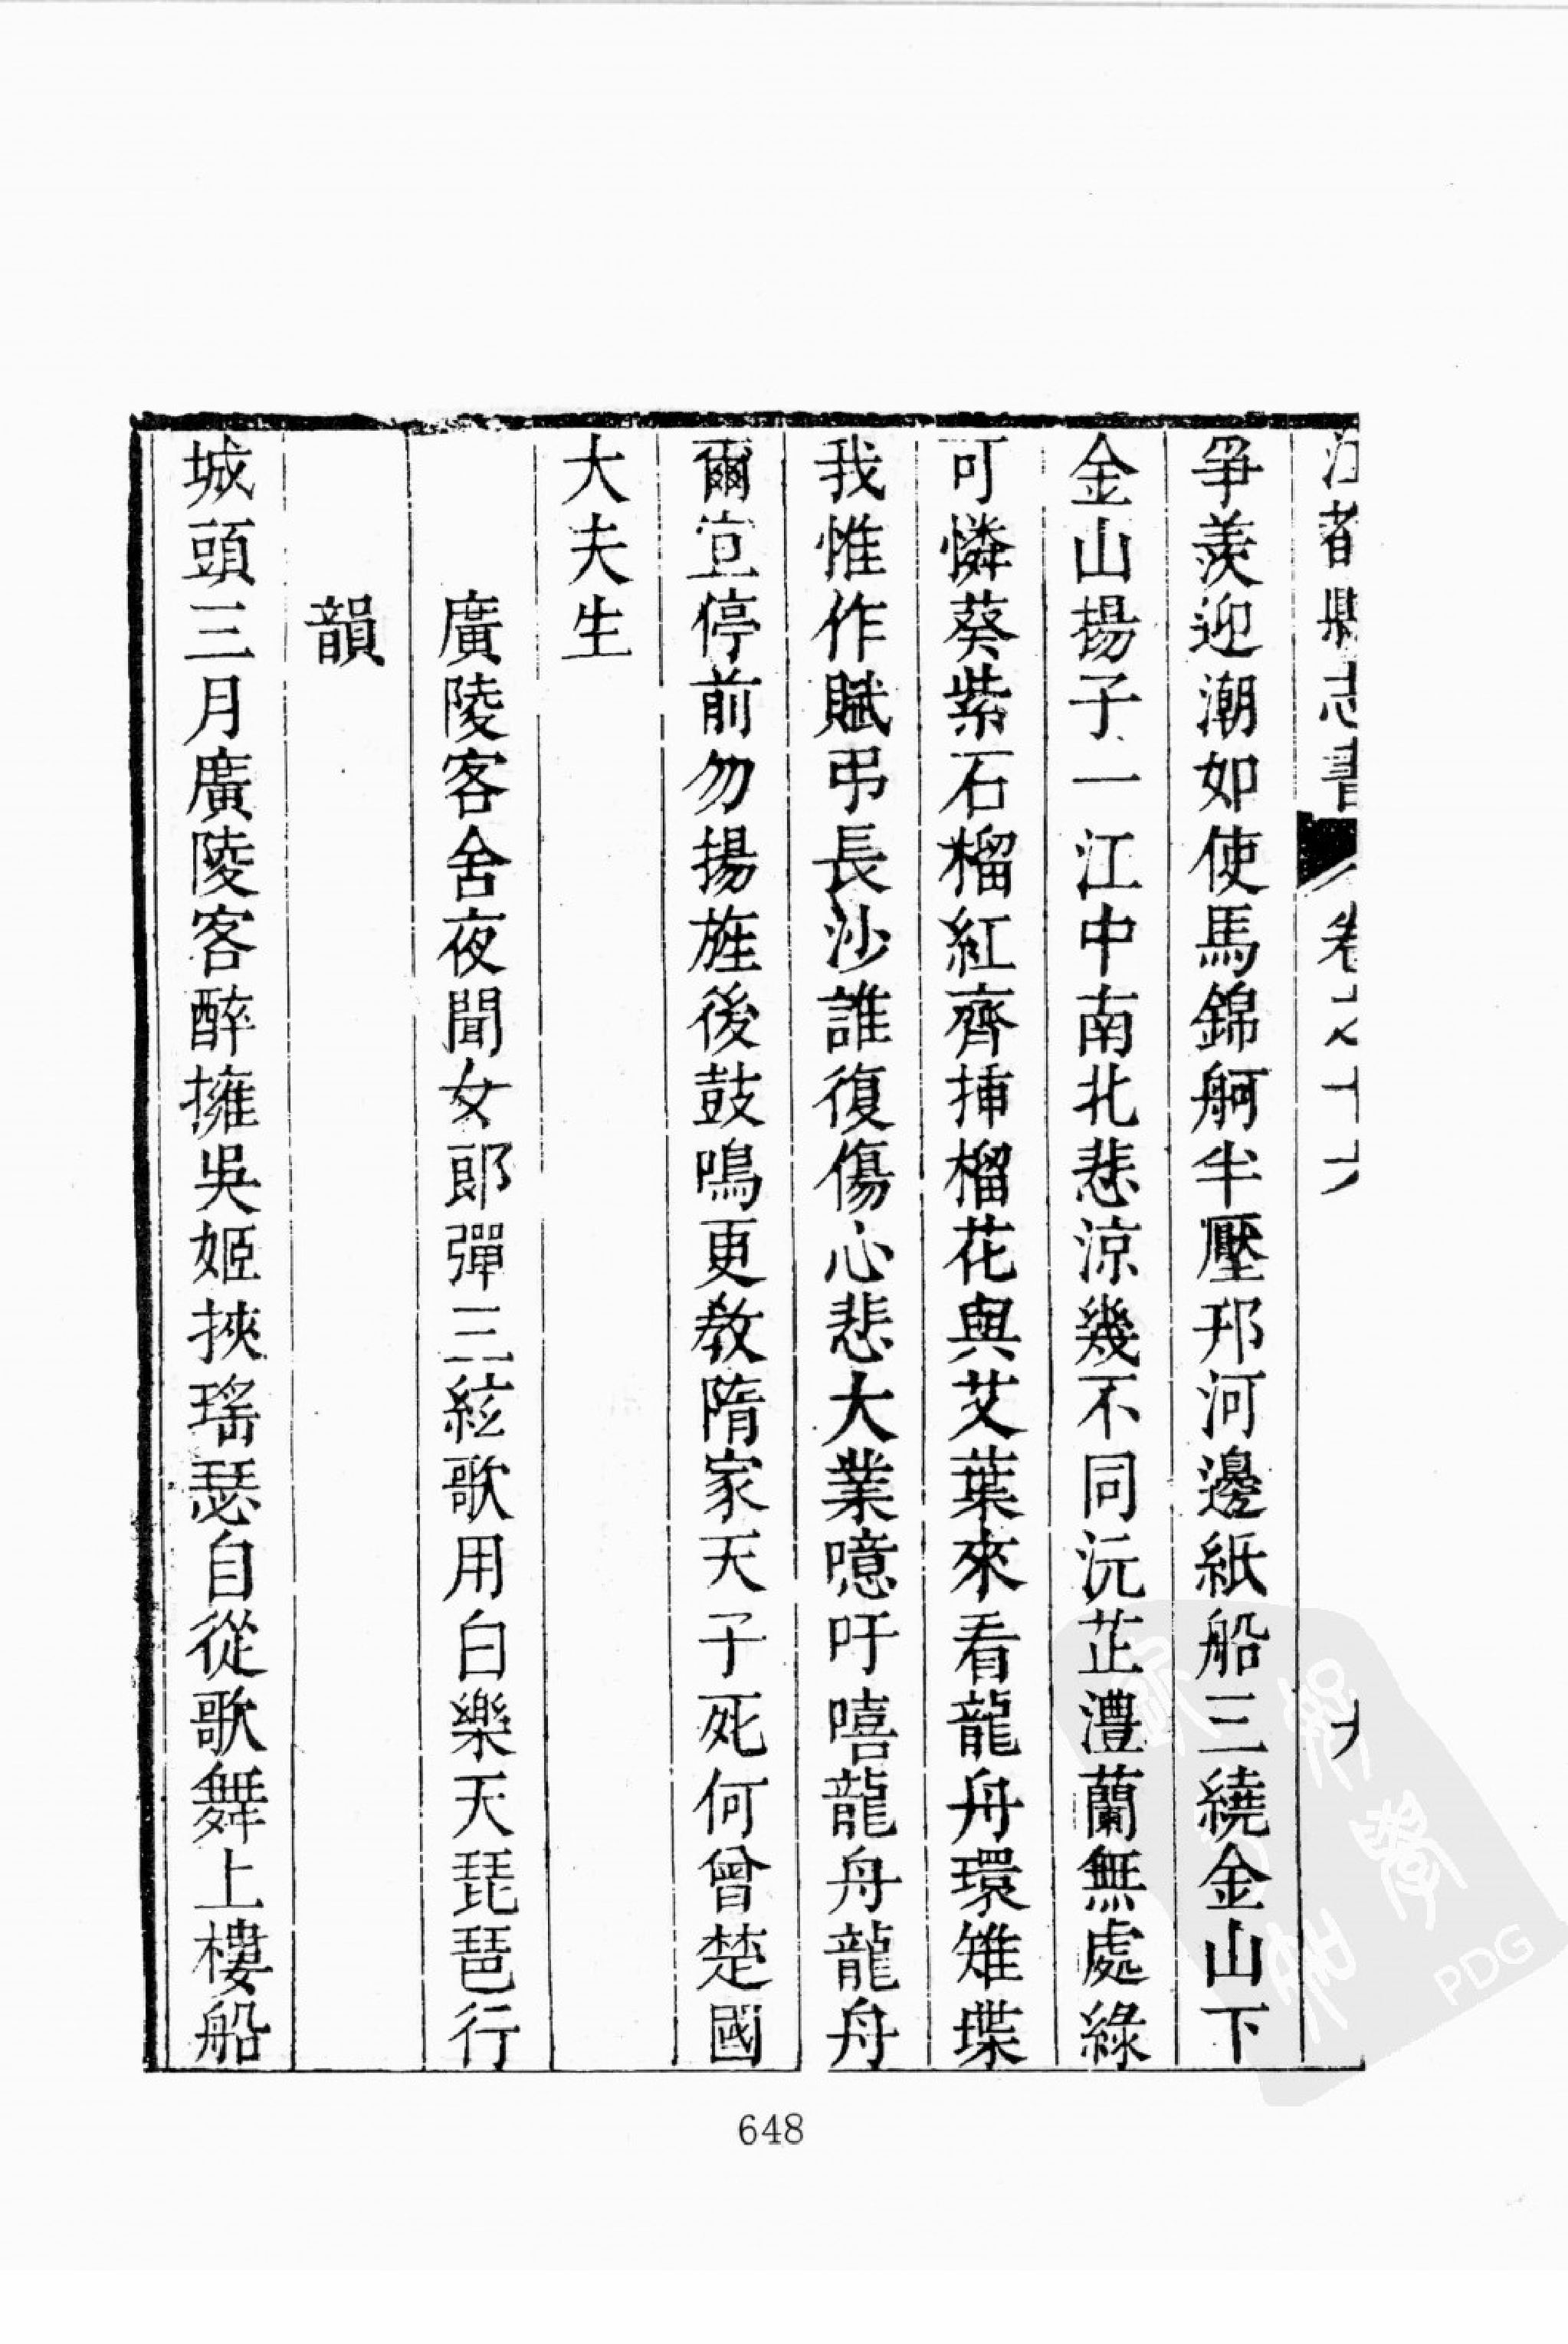 江都縣志書　卷　十
爭羨迎潮如使馬錦舸半壓邗河邊紙船三繞金山下
金山揚子一江中南北悲涼幾不同沅芷澧蘭無處綠
可憐葵紫石榴紅齊揷榴花與艾葉來看龍舟環雉堞
我惟作賦弔長沙誰復傷心悲大業噫吁嘻龍舟龍舟
爾宜停前勿揚旌後鼓鳴更敎隋家天子死何曾楚國
大夫生
廣陵客舍夜聞女郎彈三絃歌用白樂天琵琶行
韻
城頭三月廣陵客醉擁吳姬挾瑤瑟自從歌舞上樓船
648
PDG